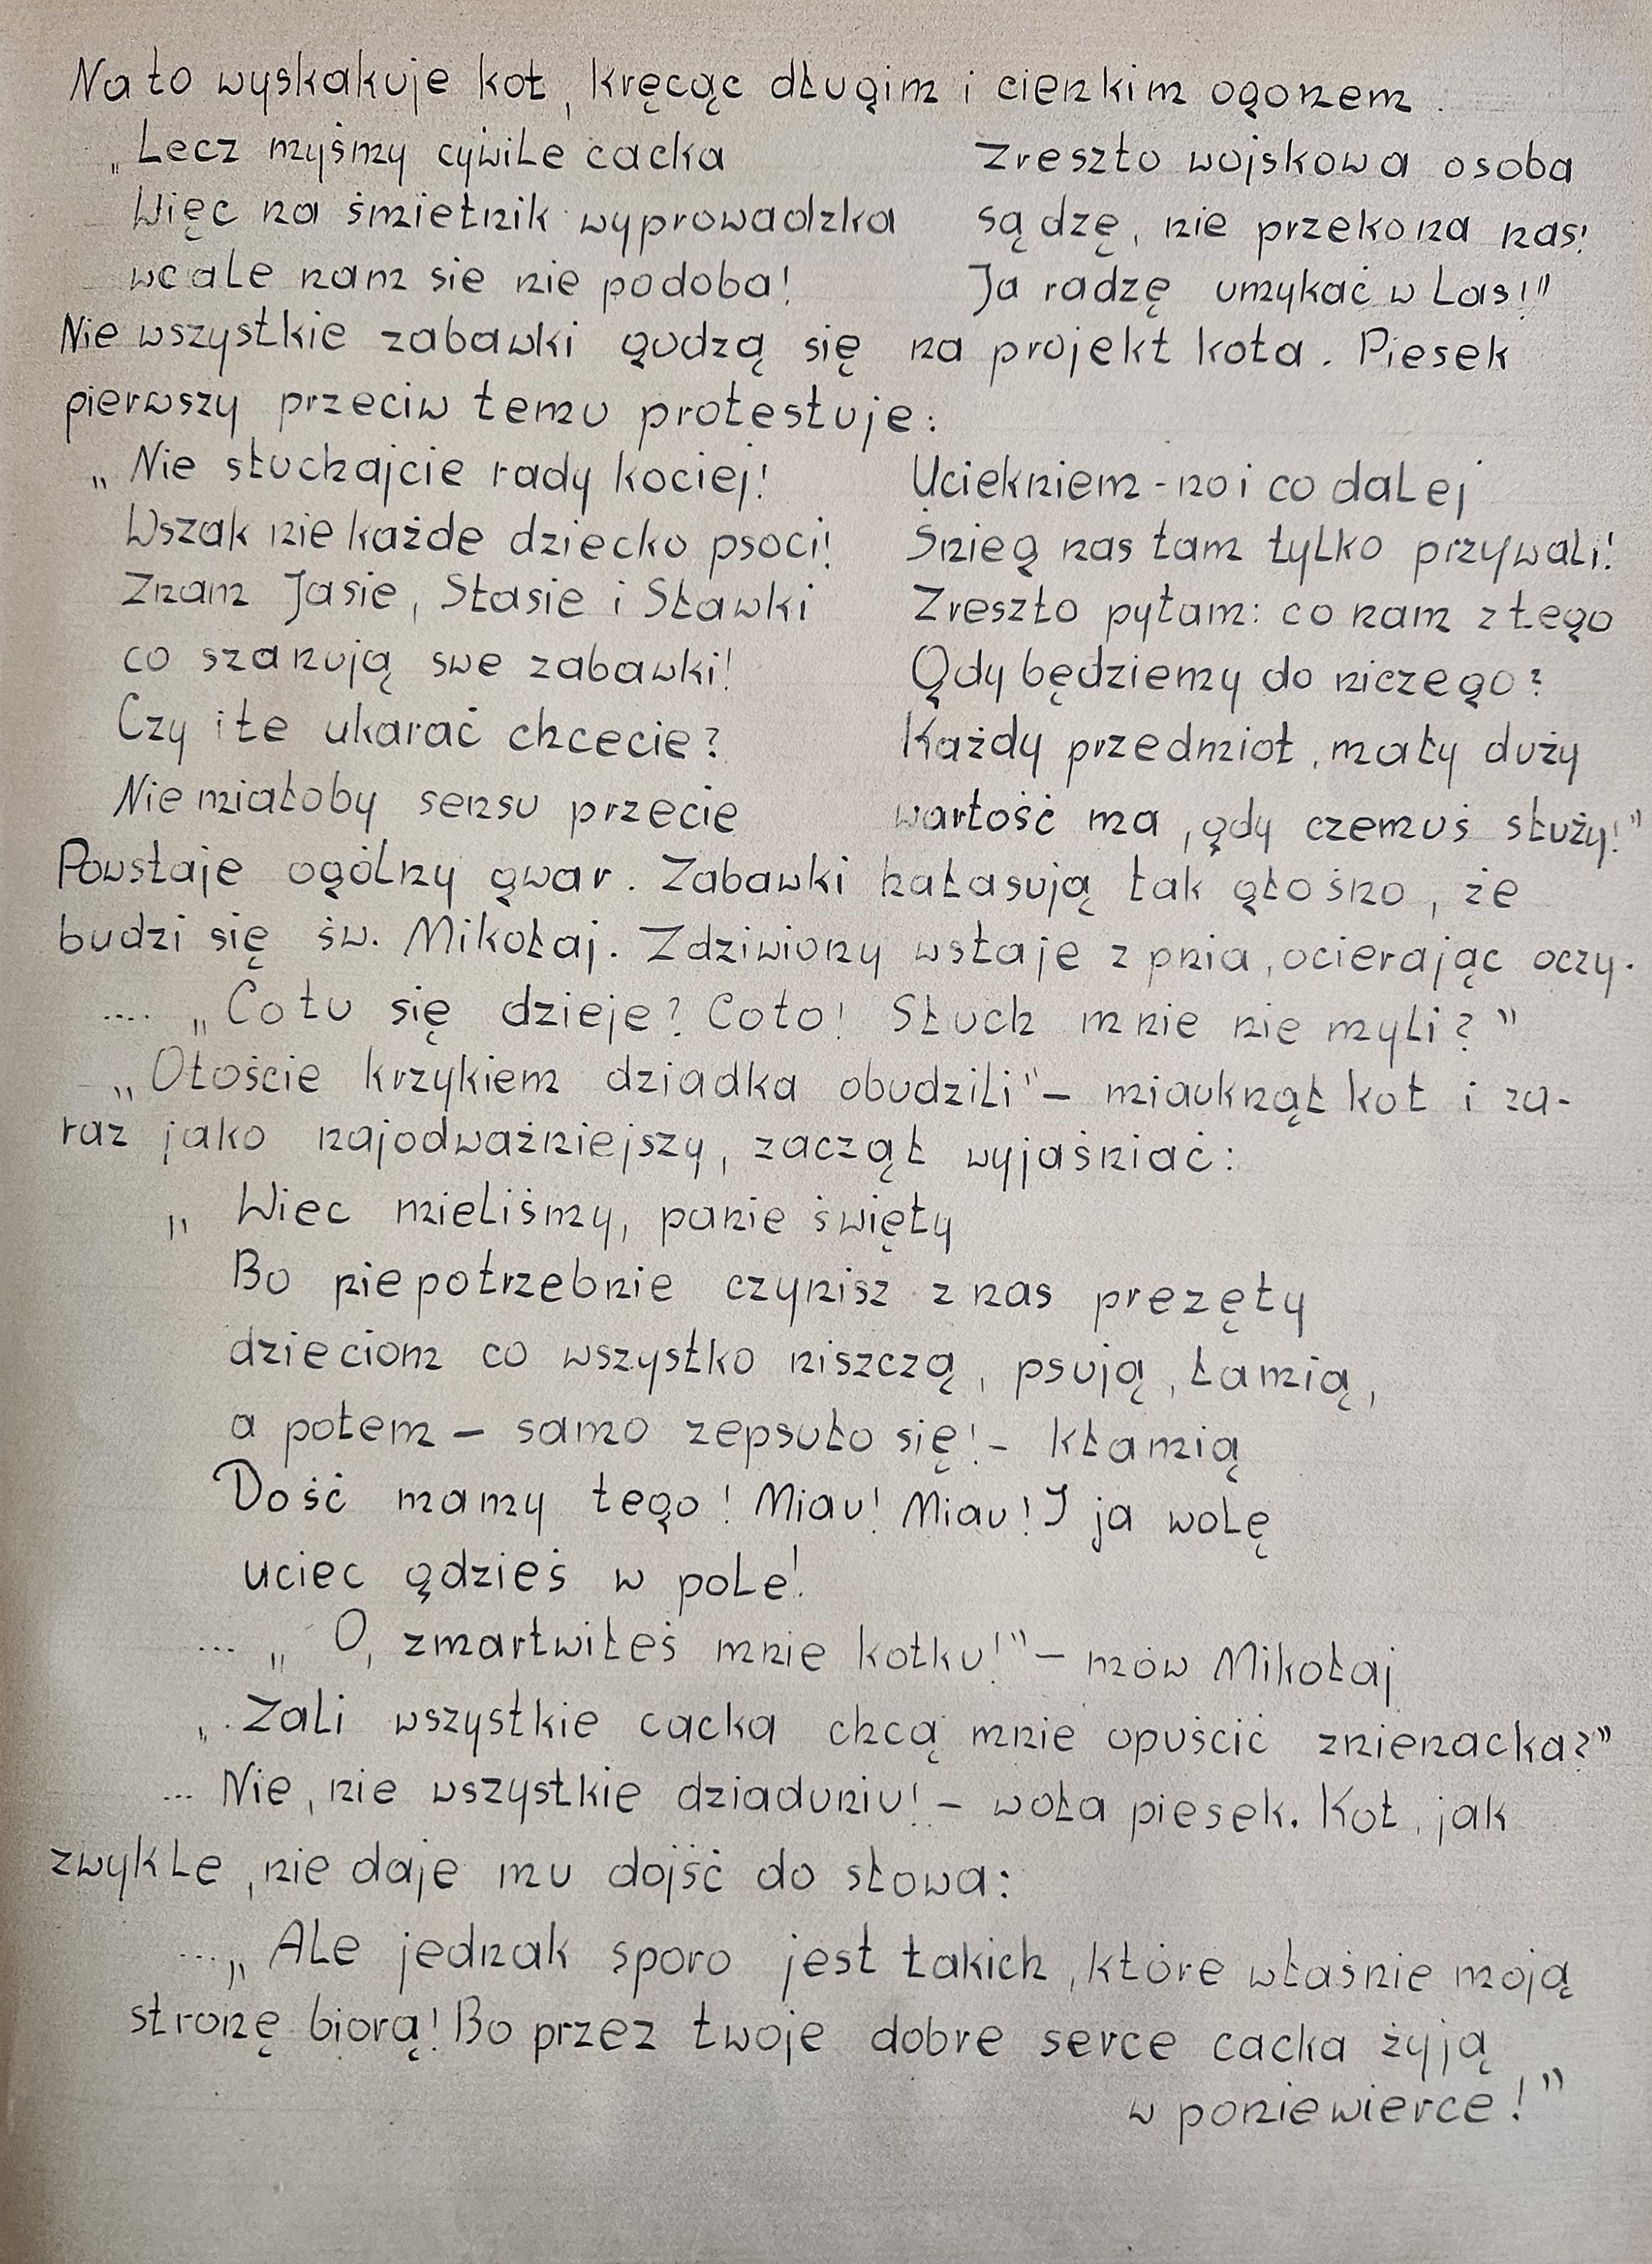 Na to wyskakuje kot, kręcąc długim i cienkim ogonem.
„Lecz myśmy cywile cacka
Więc na śmietnik wyprowadzka
wcale nam sie nie podoba!
Zreszto wojskowa osoba
sądzę, nie przekona nas!
Ja radzę umykać w las!"
Nie wszystkie zabawki godzą się na projekt kota. Piesek
pierwszy przeciw temu protestuje:
„Nie słuchajcie rady kociej!
Wszak nie każde dziecko psoci!
Znam Jasie, Stasie i Sławki
co szanują swe zabawki!
Czy i te ukarać chcecie?
Nie miałoby sensu przecie
Uciekniem - no i co dalej
Śnieg nas tam tylko przywali!
Zreszto pytam: co nam z tego
Gdy będziemy do niczego?
Każdy przedmiot, mały duży
wartość ma, gdy czemuś służy!"
Powstaje ogólny gwar. Zabawki hałasują tak głośno, że
budzi się św. Mikołaj. Zdziwiony wstaje z pnia, ocierając oczy.
.... „Co tu się dzieje? Co to! Słuch mnie nie myli?"
„Otoście krzykiem dziadka obudzili" – miauknął kot i za-
raz jako najodważniejszy, zaczął wyjaśniać:
„Wiec mieliśmy, panie święty
Bo niepotrzebnie czynisz z nas prezęty
dzieciom co wszystko niszczą, psują, łamią,
a potem – samo zepsuło się! – kłamią
Dość mamy tego! Miau! Miau! I ja wolę
uciec gdzieś w pole!
... „O, zmartwiłeś mnie kotku!" – mów Mikołaj
„Zali wszystkie cacka chcą mnie opuścić znienacka?"
... Nie, nie wszystkie dziaduniu! – woła piesek. Kot, jak
zwykle, nie daje mu dojść do słowa:
...„Ale jednak sporo jest takich, które właśnie moją
stronę biorą! Bo przez twoje dobre serce cacka żyją
w poniewierce!"